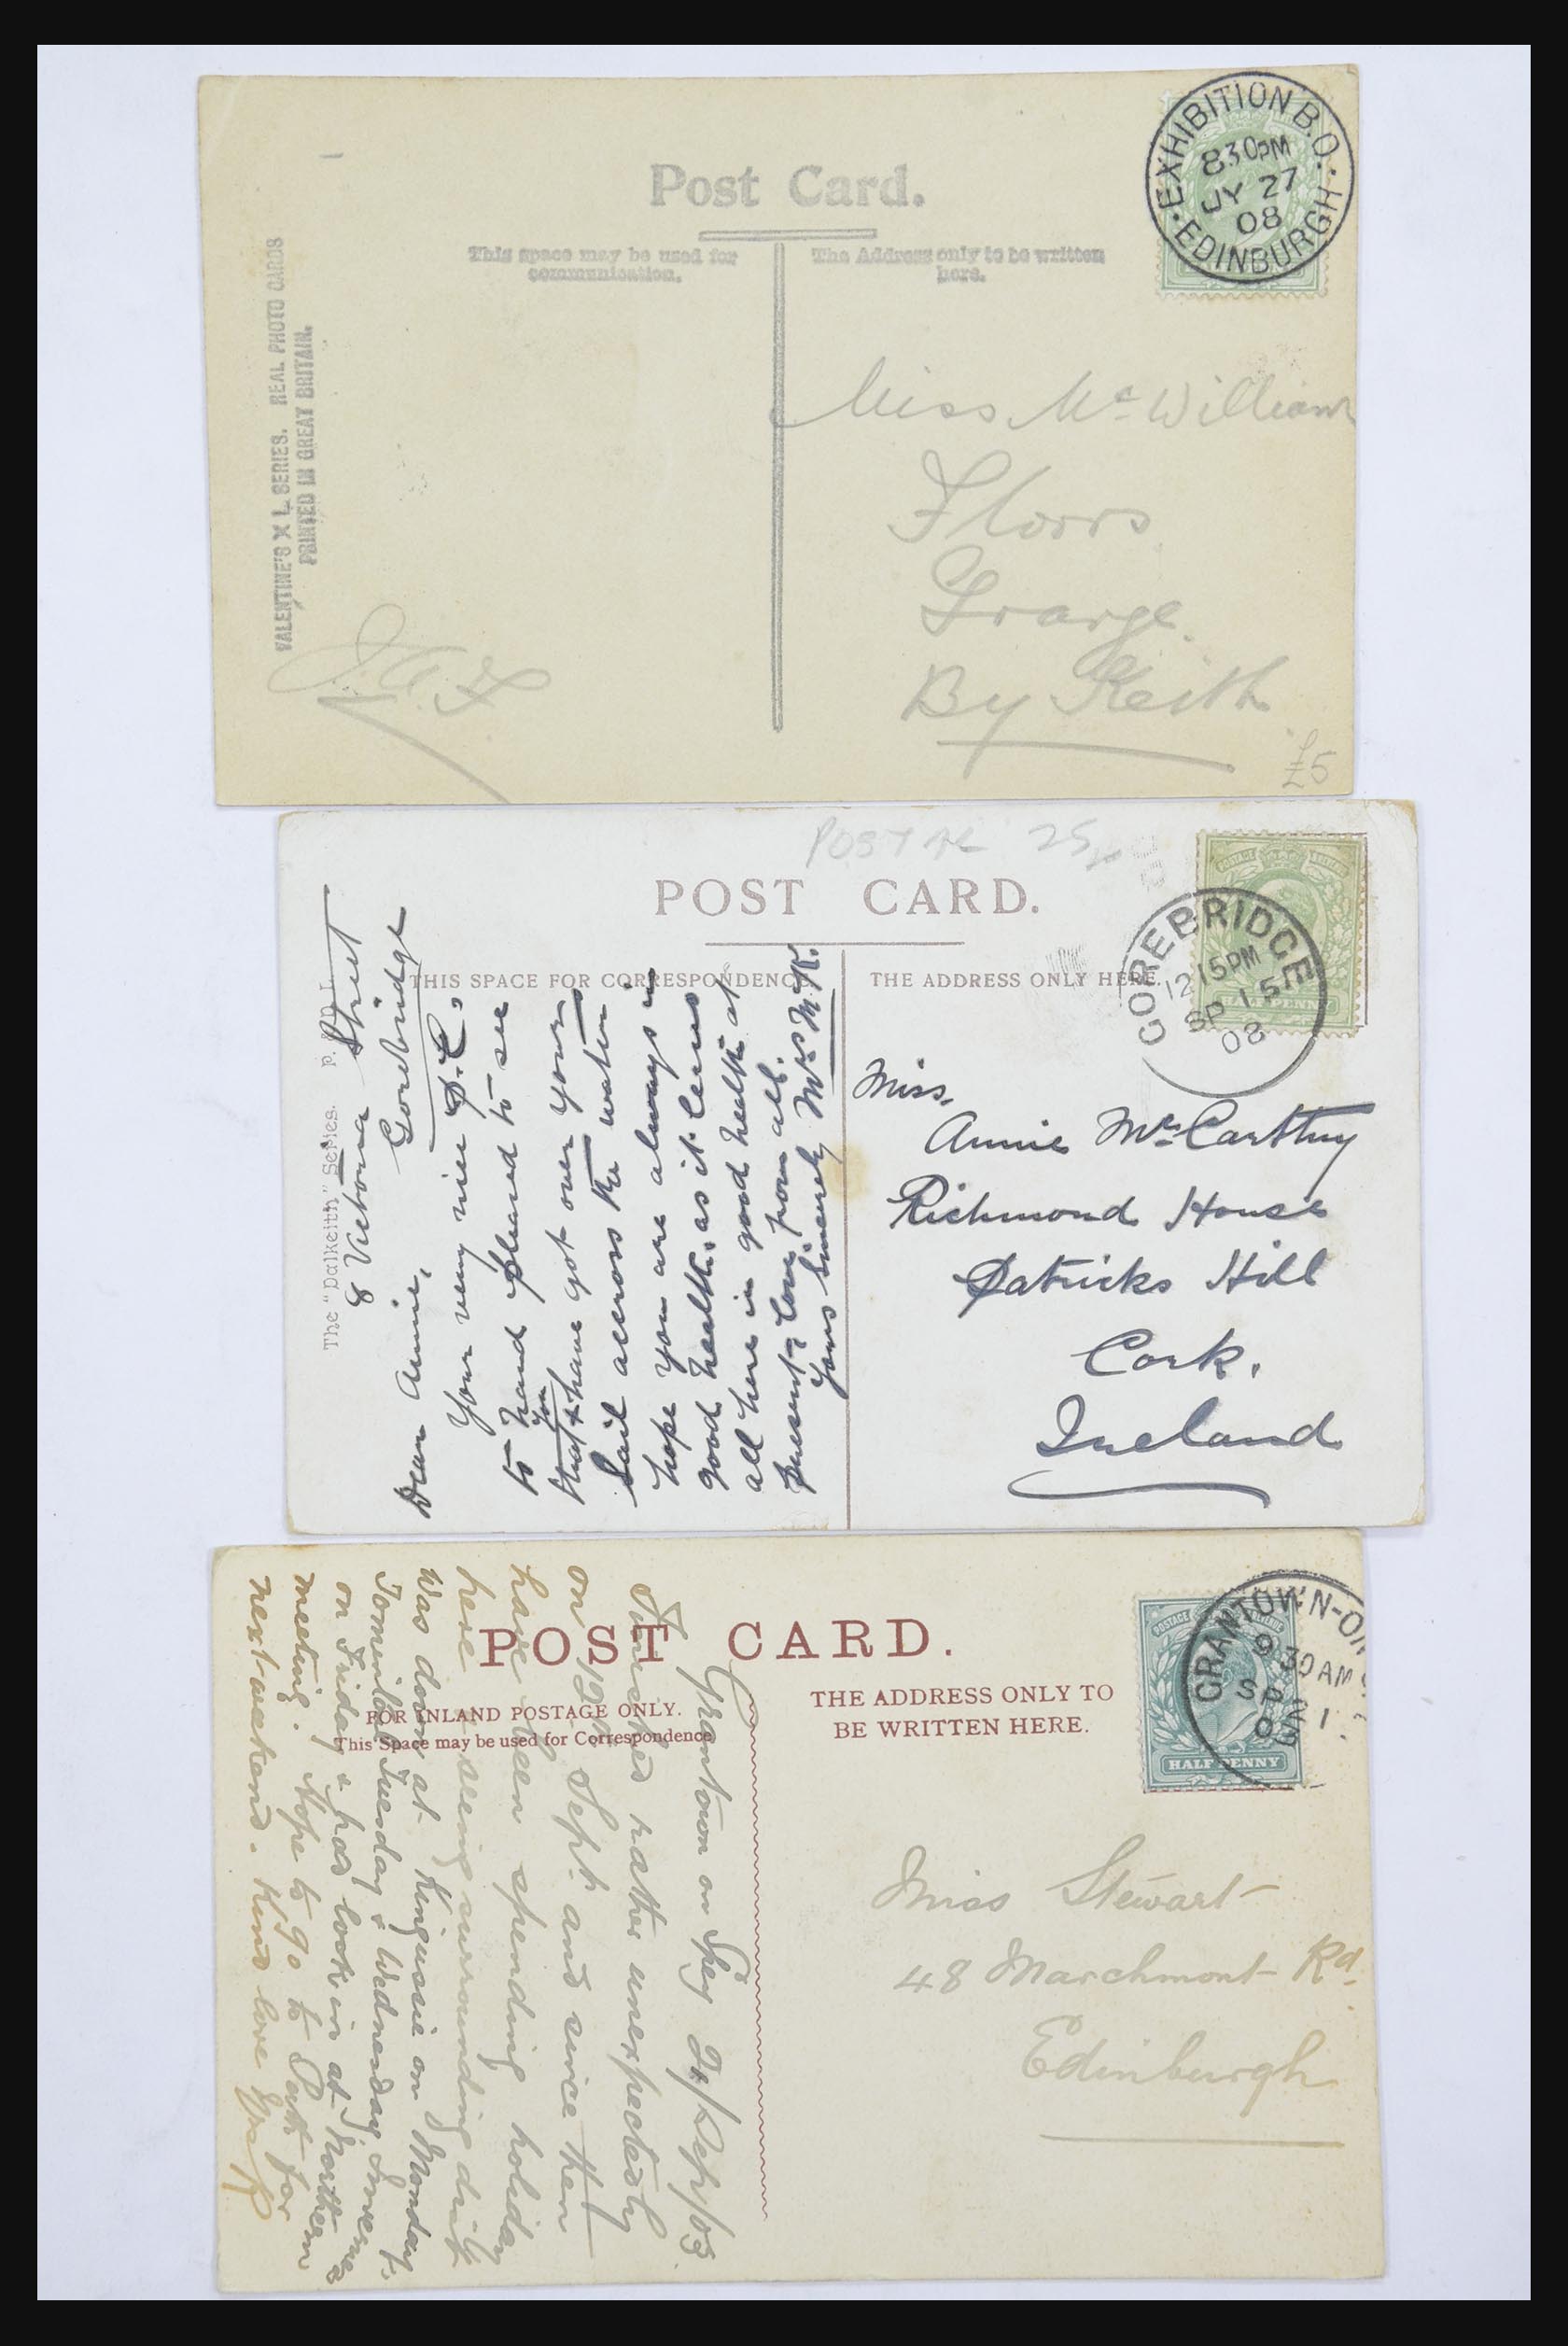 Post Card.
This space may be used for
communication.
The Address only to be written
here.
EXHIBITION B.O.
EDINBURGH
830PM
JY 27
08
VALENTINE'S X L SERIES. REAL PHOTO CARDS
PRINTED IN GREAT BRITAIN.
Miss Mc William
Floors
Grange.
By Keith
£5
POST CARD.
THIS SPACE FOR CORRESPONDENCE
THE ADDRESS ONLY HERE.
GOREBRIDGE
1215PM
SP 15
08
HALF PENNY
The "Dalkeith" Series.
8 Victoria Street
Gorebridge
Dear Annie,
Your very nice P.C.
to hand pleased to see
that you have got over your
Sail across the water
hope you are always in
good health, as it leaves
all here in good health at
present love from all.
Yours Sincerely Mrs McK.
Miss.
Annie McCarthy
Richmond House
Patricks Hill
Cork.
Ireland
POST CARD.
FOR INLAND POSTAGE ONLY.
This Space may be used for Correspondence
THE ADDRESS ONLY TO
BE WRITTEN HERE.
GRANTOWN-ON
9 30AM
SP
HALF PENNY
Grantown on Spey
rather unexpectedly
on 12th Sept. and since then
have been spending holiday
here seeing surrounding
Was down at Kingussie on Monday,
Tuesday & Wednesday,
on Friday & had look in at Northern
meeting. Hope to go to Perth for
next weekend. Kind love
Miss Stewart
48 Marchmont Rd.
Edinburgh